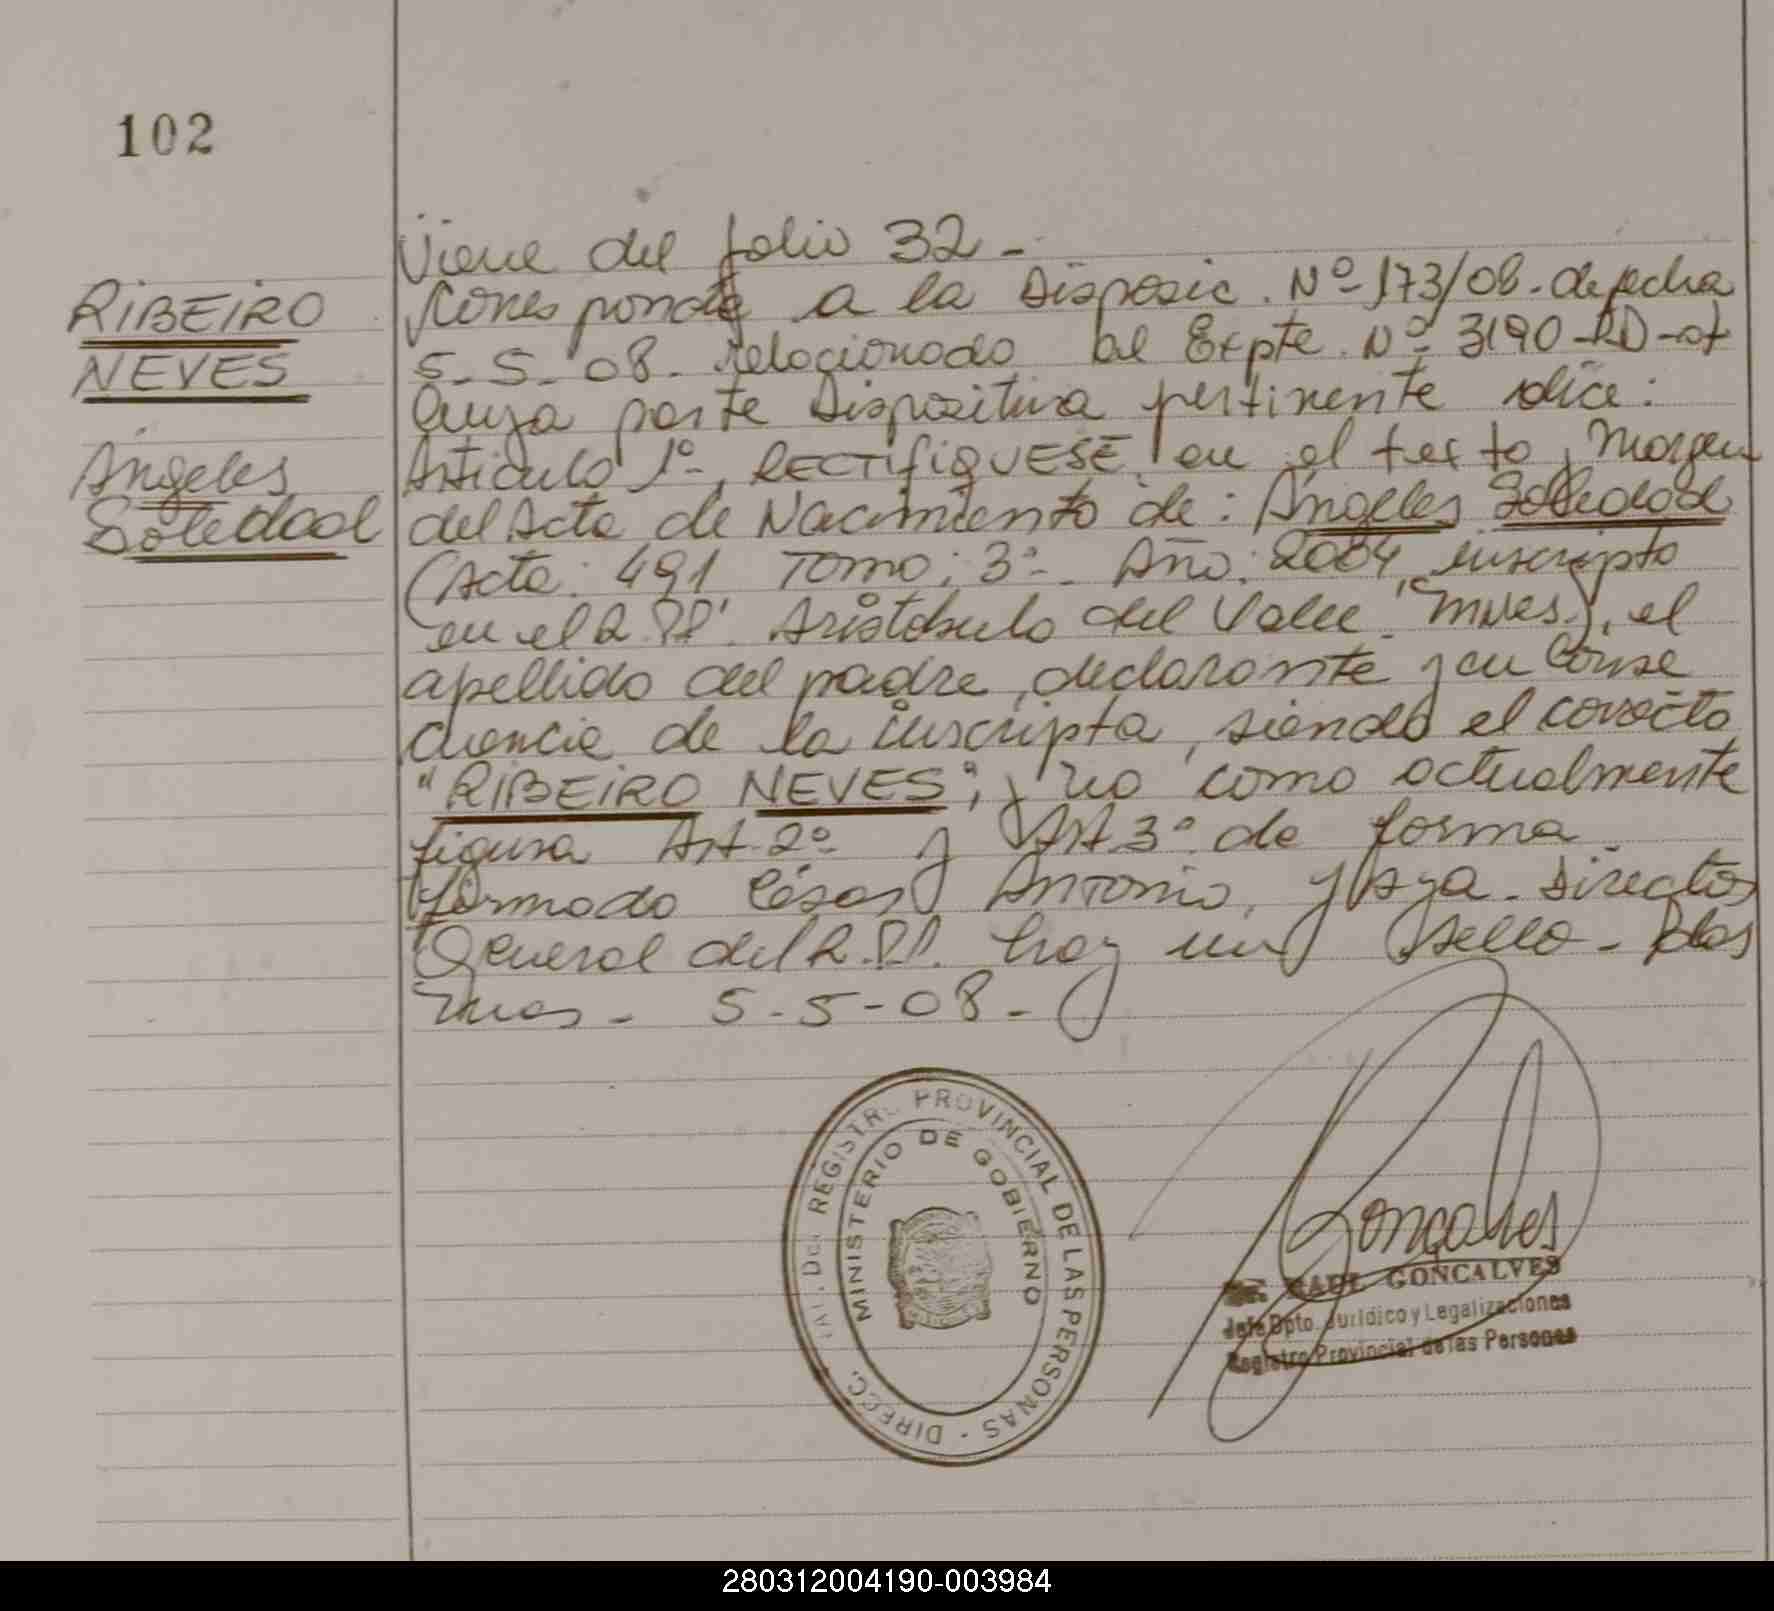 102
RIBEIRO
NEVES
Angeles
Soledad
Viene del folio 32 -
Corresponde a la Disposic. Nº 173/08. de fecha
5-5-08- relacionado al Expte. Nº 3190-RD-07
Cuya parte Dispositiva pertinente dice:
Articulo 1º, RECTIFIQUESE en el texto y Margen
del Acta de Nacimiento de: Angeles Soledad
(Acta: 491 Tomo: 3º- Año: 2004, inscripta
en el R.PP. Aristobulo del Valle. Mnes.), el
apellido del padre, declarante y en Conse
cuencia de la inscripta, siendo el correcto
"RIBEIRO NEVES", y no como actualmente
figura Art. 2º y Art. 3º de forma
firmado César Antonio, Director
General del R.PP. hay un Sello - Pdas
Mnes - 5-5-08-
DIREC. RAL. DEL REGISTRO PROVINCIAL DE LAS PERSONAS -
MINISTERIO DE GOBIERNO
Goncalves
RAUL GONCALVES
Jefe Dpto. Jurídico y Legalizaciones
Registro Provincial de las Personas
280312004190-003984